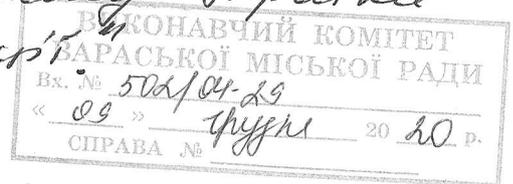 ВИКОНАВЧИЙ КОМІТЕТ
ВАРАСЬКОЇ МІСЬКОЇ РАДИ
Вх. № 502/04-29
« 09 » грудня 20 20 р.
СПРАВА №